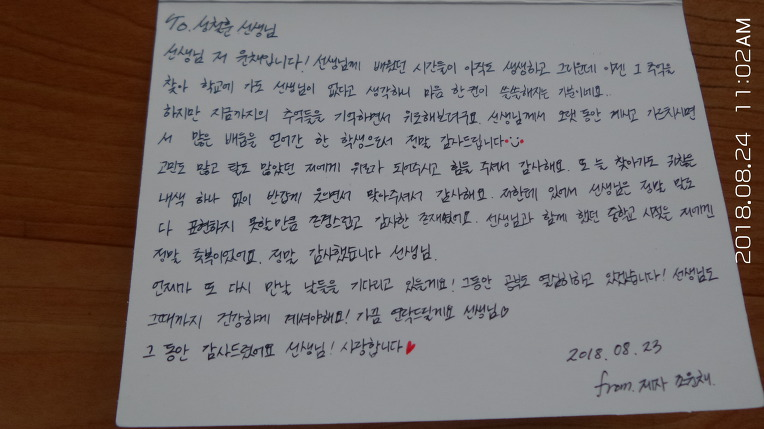 To. 성철훈 선생님
선생님 저 윤채입니다! 선생님께 배웠던 시간들이 아직도 생생하고 그리운데 이젠 그 추억을
찾아 학교에 가도 선생님이 없다고 생각하니 마음 한 켠이 쓸쓸해지는 기분이네요..
하지만 지금까지의 추억들을 기억하면서 위로해보려구요. 선생님께서 오랫동안 계시고 가르치시면
서 많은 배움을 얻어간 한 학생으로서 정말 감사드립니다
고민도 많고 탈도 많았던 저에게 위로가 되어주시고 힘을 주셔서 감사해요. 또 늘 찾아가도 귀찮은
내색 하나 없이 반갑게 웃으면서 맞아주셔서 감사해요. 저한테 있어서 선생님은 정말 말로
다 표현하지 못할만큼 존경스럽고 감사한 존재였어요. 선생님과 함께 했던 중학교 시절은 저에겐
정말 축복이었어요. 정말 감사했습니다 선생님.
언젠가 또 다시 만날 날들을 기다리고 있을게요! 그동안 공부도 열심히하고 있겠습니다! 선생님도
그때까지 건강하게 계셔야해요! 가끔 연락드릴게요 선생님♡
그 동안 감사드렸어요 선생님! 사랑합니다♥
2018. 08. 23
from. 제자 조윤채.
2018.08.24 11:02AM